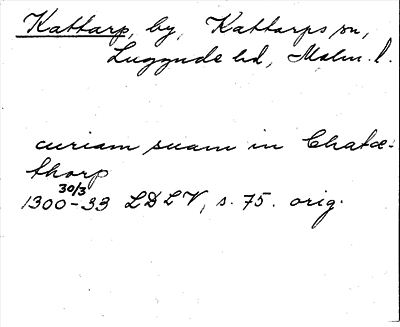 Kattarp, by, Kattarps sn,
Luggude hd, Malm. l.
curiam suam in Chatæ-
thorp
30/3
1300-33 LDLV, s. 75. orig.